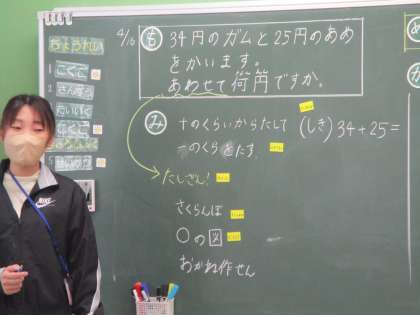 4/16
も 34円のガムと25円のあめ
をかいます。
あわせて荷円ですか。
み 十のくらいからたして
一のくらをたす。
(しき) 34+25=
たしざん!
さくらんぼ
○の図
おかね作せん
1 こくご
2 さんすう
3 たいいく
4 こくご
5
NIKE